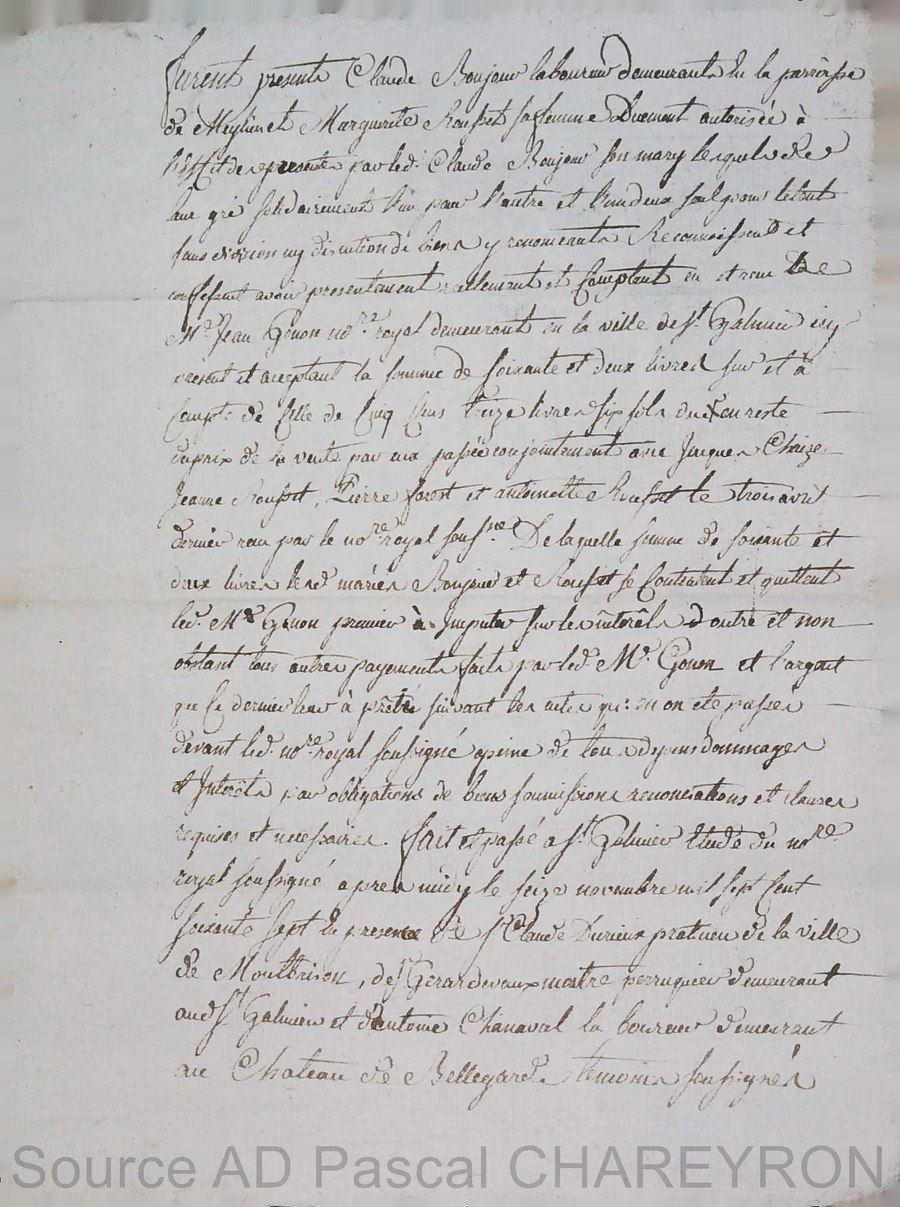 furent presents Claude Bonjour laboureur demeurants en la parroisse
de Meylieu et Marguerite Rousset sa femme Duement autorisée à
l'effet des presentes par led. Claude Bonjour son mary lesquels de
leur gré solidairement l'un pour l'autre et l'un deux seul pour le tout
sans division ny discution de biens y renoncants Reconnoissent et
confessent avoir presentement réellement et Comptant eu et receu De
Me. Jean Gonon nore. royal demeurant en la ville de St. Galmier icy
present et acceptant la somme de soixante et deux livres sur et à
Compte de Celle de Cinq Cens treize livres six sols du reste
du prix de la vente par eux passée conjointement avec Jacques Chaize
Jeanne Rousset, Pierre forest et antoinette Rousset le trois avril
dernier receu par le nore. royal soussne. De laquelle somme de soixante et
deux livres lesd. mariés Bonjour et Rousset se Contentent et quittent
led. Me. Gonon premier à Imputer sur les intérêts d'outre et non
obstant tous autres payements faits par led. Me. Gonon et l'argent
que Ce dernier leur à prêté suivant les actes qui en on été passés
devant led. nore. royal soussigné a peine de tous depens dommages
et Interêts par obligations de biens soumissions renonciations et clauses
requises et necessaires. fait et passé a St. Galmier étude du nore.
royal soussigné apres midy le seize novembre mil sept Cent
soixante sept en presence de Sr. Claude Durieux praticien de la ville
de Montbrison, de Sr. Gerard devaux maitre perruquier demeurant
aud. St. Galmier et d'antoine Chanaval laboureur demeurant
au Chateau de Bellegarde temoins soussignés
Source AD Pascal CHAREYRON